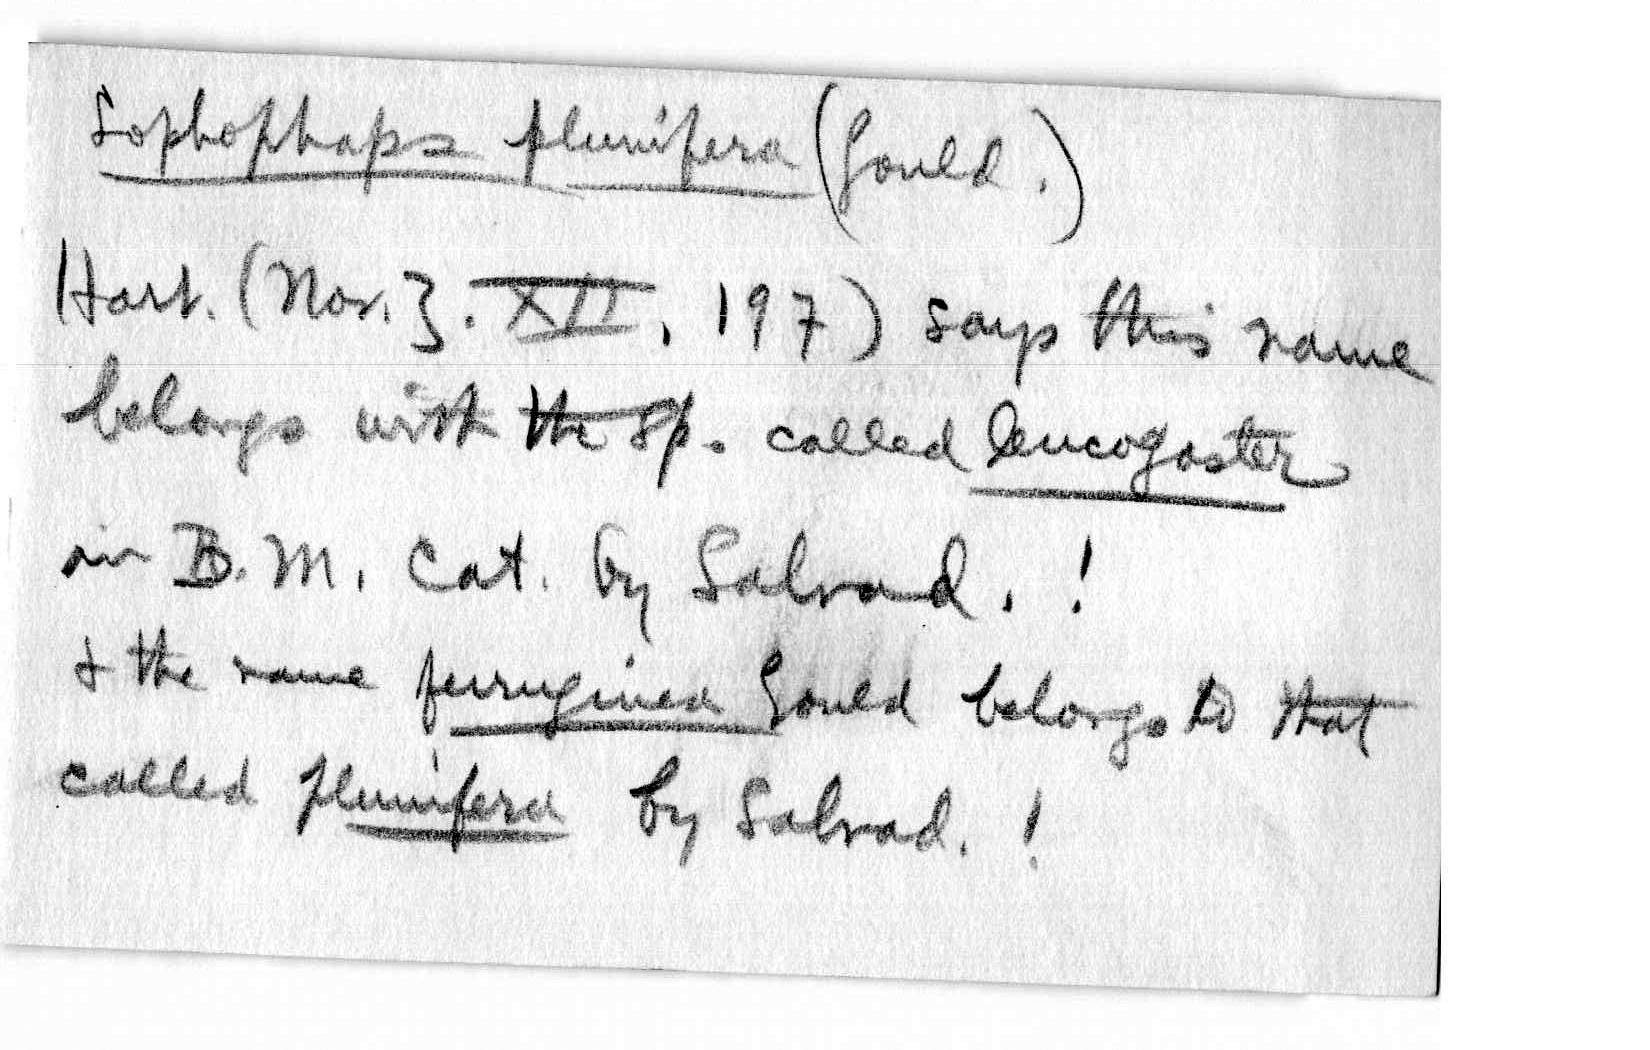 Lophophaps plumifera (Gould.)
Hart. (Nov. Z. XII, 197) says this name
belongs with the sp. called leucogaster
in B. M. Cat. by Salvad. !
& the name ferruginea Gould belongs to that
called plumifera by Salvad. !